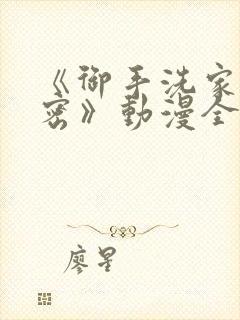 《御手洗家
密》動漫全
廖星